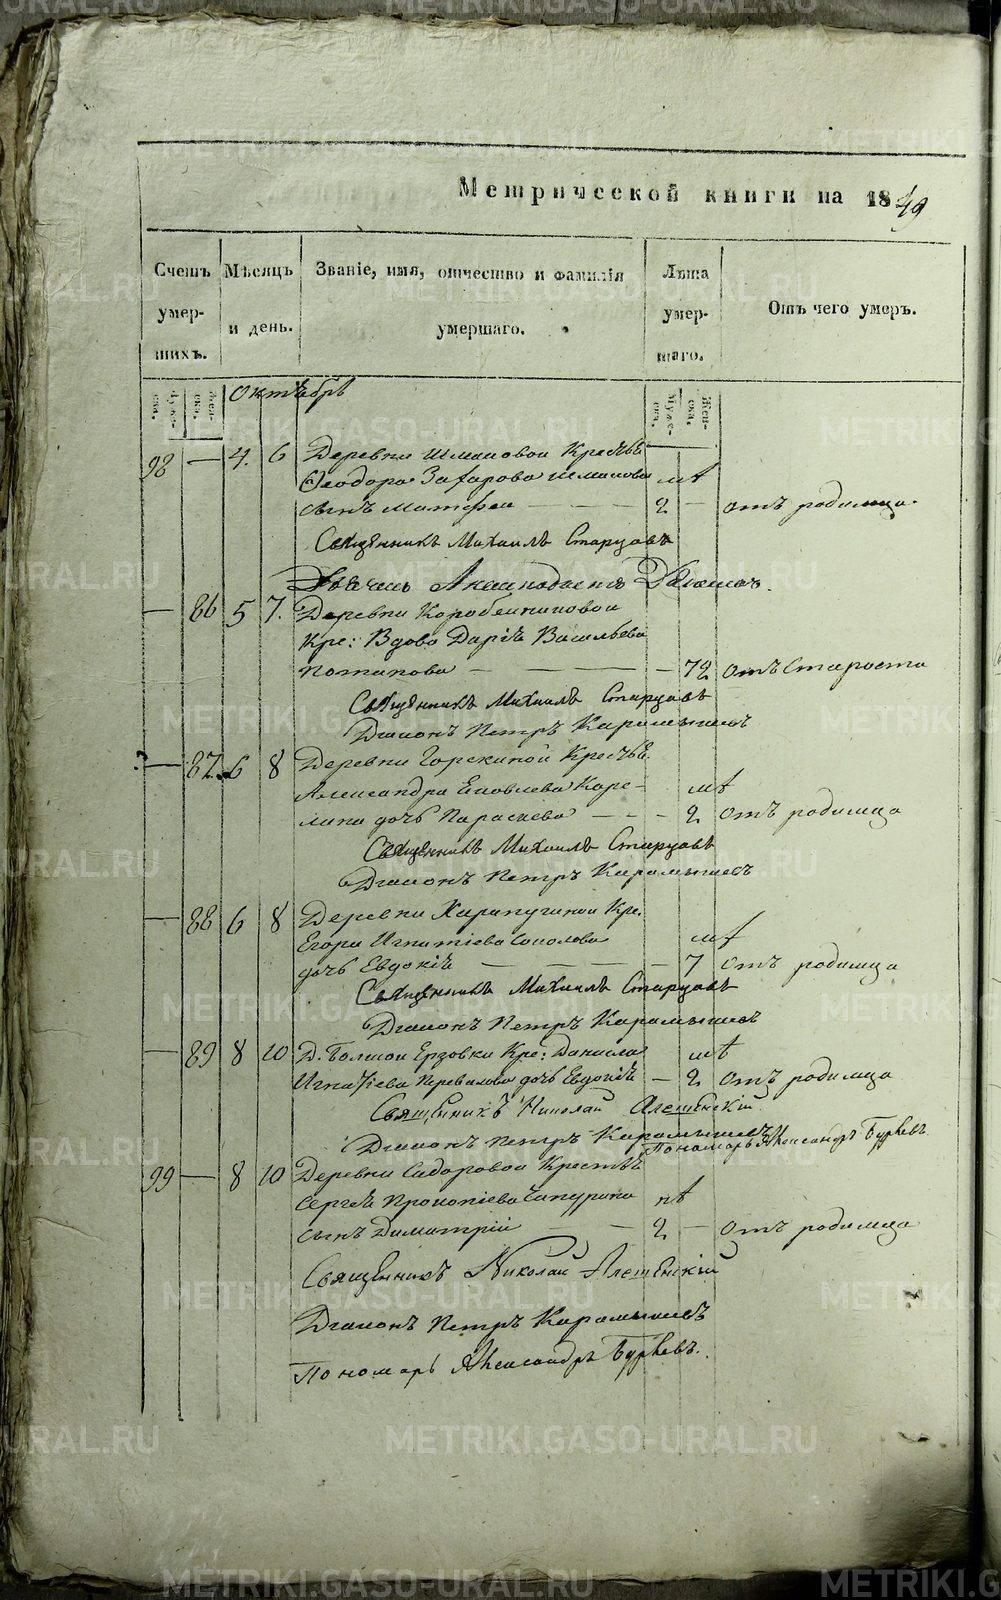 Метрической книги на 1849
Счетъ умершихъ.
Мѣсяцъ и день.
Званіе, имя, отчество и фамилія умершаго.
Лѣта умершаго.
Отъ чего умеръ.
Октѣбрѣ
98 — 4. 6 Деревни Шмаковой Крестьѣ
Ѳеодора Захарова Шмакова мѣ
сынъ Матфеи — 2 — отъ родимца.
Священникъ Михаилъ Старцовъ
Дьячекъ
— 86 5 7. Деревни Коробейниковой
Кре: Вдова Дарія Васильева
Потапова — 72 отъ Старости
Священникъ Михаилъ Старцовъ
Діаконъ Петръ Карамышевъ
— 87. 6 8 Деревни Горскиной Кресть.
Александра Яковлева Коре- мѣ
лина дочь Параскева — 2 отъ родимца
Священникъ Михаилъ Старцовъ
Діаконъ Петръ Карамышевъ
— 88 6 8 Деревни Харапугиной Кре.
Егора Игнатіева Соколова мѣ
дочь Евдокія — 7 отъ родимца
Священникъ Михаилъ Старцовъ
Діаконъ Петръ Карамышевъ
— 89 8 10 Д. Болшой Ерзовки Кре: Данила мѣ
Игнатіева Перевалова дочь Евдокія — 2 отъ родимца
Священникъ Николай
Діаконъ Петръ Карамышевъ
Пономарь Александръ
99 — 8 10 Деревни Сидоровой Крестьѣ
Сергѣя Прокопіева Чапурина нѣ
сынъ Димитрій — 2 — отъ родимца
Священникъ Николай
Діаконъ Петръ Карамышевъ
Пономарь Александръ
METRIKI.GASO-URAL.RU